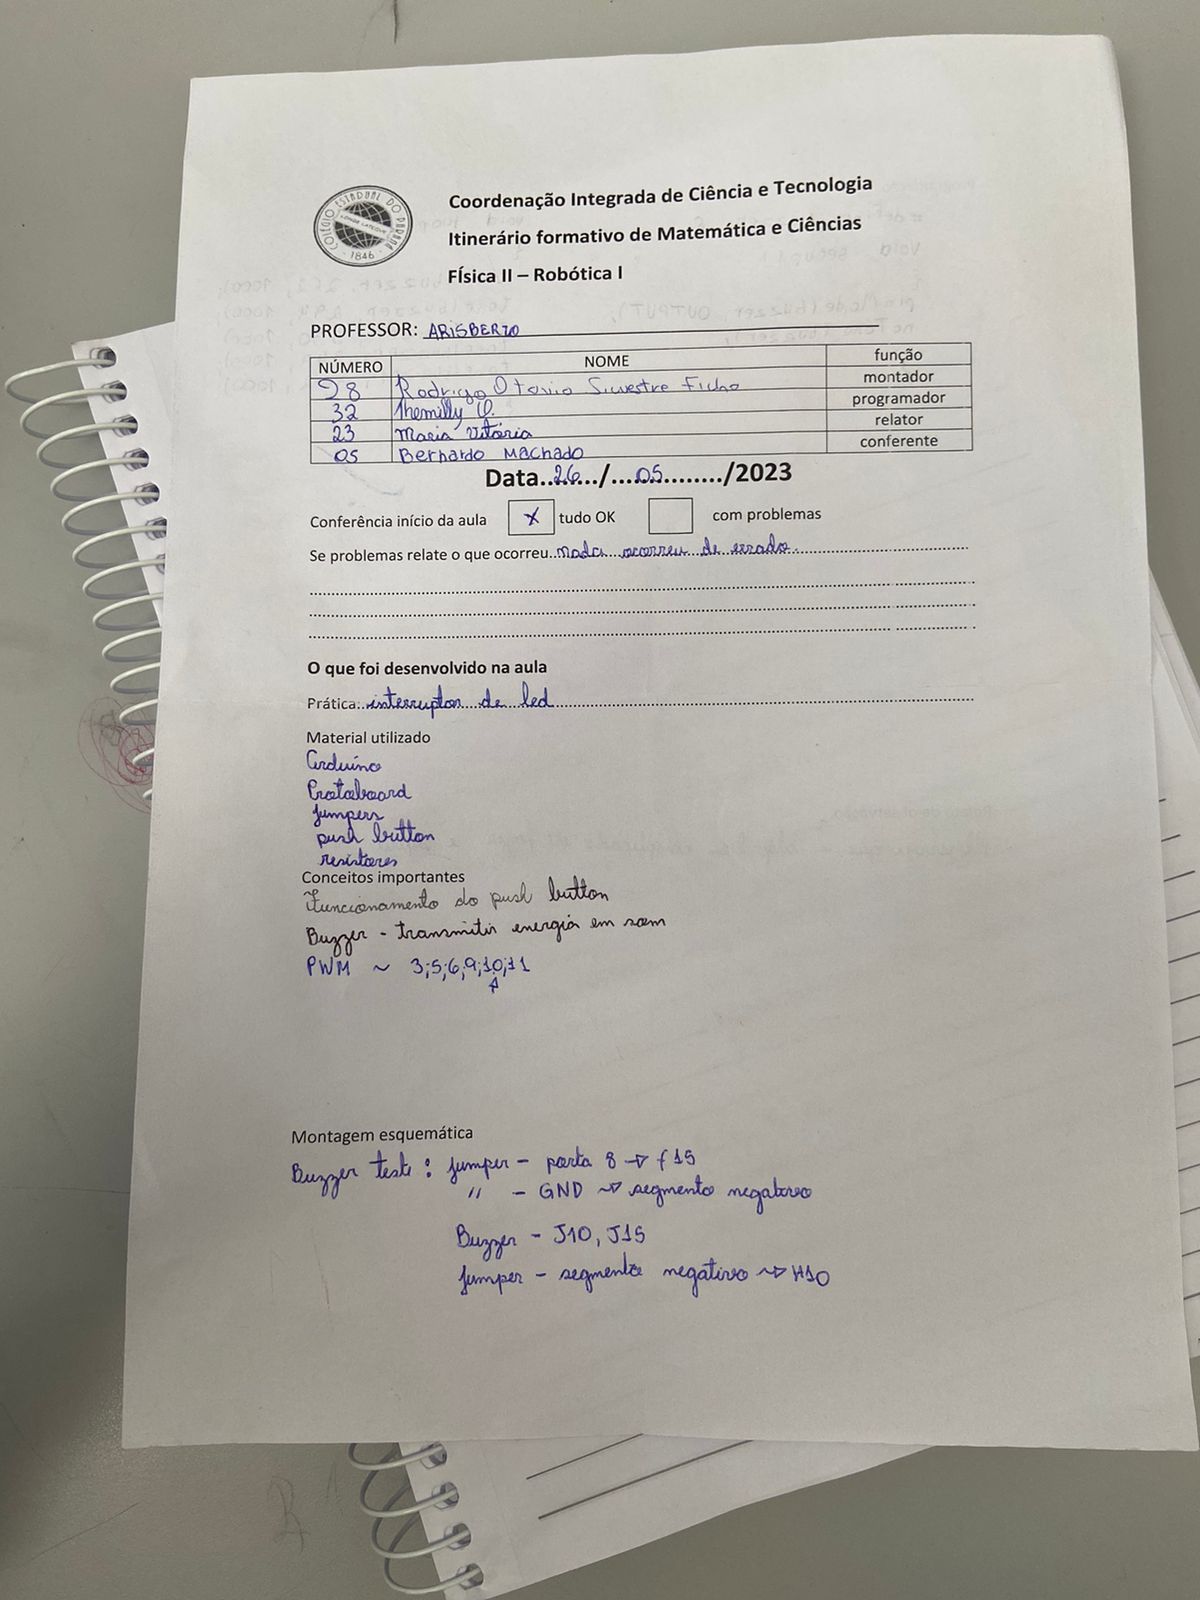 COLÉGIO ESTADUAL DO PARANÁ
1846
Coordenação Integrada de Ciência e Tecnologia
Itinerário formativo de Matemática e Ciências
Física II – Robótica I
PROFESSOR: ARISBERTO
NÚMERO NOME função
28 Rodrigo Otavio Silvestre Filho montador
32 Themilly O. programador
23 Maria Vitória relator
05 Bernardo Machado conferente
Data..26..../....05......../2023
Conferência início da aula x tudo OK com problemas
Se problemas relate o que ocorreu..nada ocorreu de errado.
O que foi desenvolvido na aula
Prática:..interruptor de led
Material utilizado
Arduino
Protoboard
jumpers
push button
resistores
Conceitos importantes
Funcionamento do push button
Buzzer - transmitir energia em som
PWM ~ 3;5;6;9;10;11
Montagem esquemática
Buzzer teste: jumper - porta 8 → f15
" - GND → segmento negativo
Buzzer - J10, J15
jumper - segmento negativo → H10